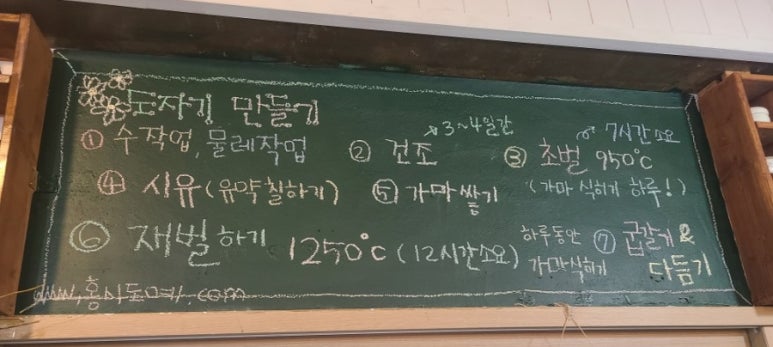 도자기 만들기
① 수작업, 물레작업 ② 건조 3~4일간 ③ 초벌 950℃ 7시간 소요
④ 시유 (유약칠하기) ⑤ 가마쌓기 (가마 식히기 하루!)
⑥ 재벌하기 1250℃ (12시간소요) 하루동안 가마식히기 ⑦ 굽갈기 & 다듬기
www.홍시도예.com